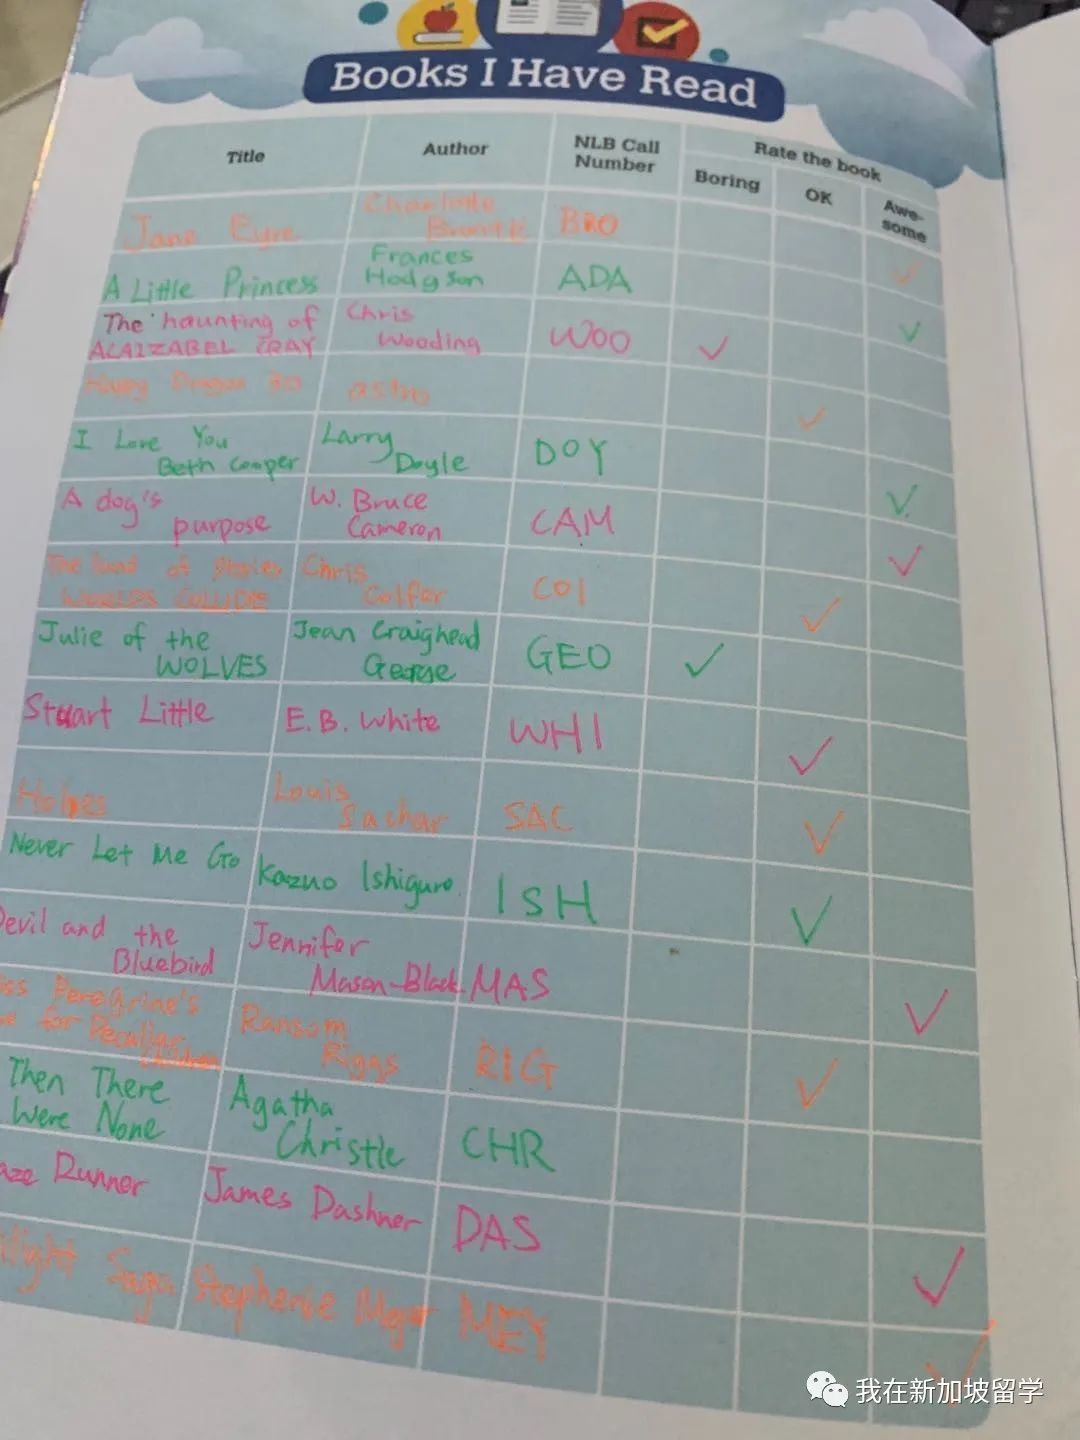 Books I Have Read
Title
Author
NLB Call
Number
Rate the book
Boring
OK
Awe-
some
Jane Eyre
Charlotte
Bronte
BRO
A Little Princess
Frances
Hodgson
ADA
The haunting of
ALAIZABEL CRAY
Chris
Wooding
WOO
Happy Dragon 30
astro
I Love You
Beth Cooper
Larry
Doyle
DOY
A dog's
purpose
W. Bruce
Cameron
CAM
The land of
WORLDS COLLIDE
Chris
Colfer
COl
Julie of the
WOLVES
Jean Craighead
George
GEO
Stuart Little
E.B. White
WHI
Holes
Louis
Sachar
SAC
Never Let Me Go
Kazuo Ishiguro.
ISH
Devil and the
Bluebird
Jennifer
Mason-Black
MAS
iss Peregrine's
e for Peculiar
children
Ransom
Riggs
RIG
Then There
Were None
Agatha
Christle
CHR
aze Runner
James Dashner
DAS
ilight Saga
Stephenie Meyer
MEY
我在新加坡留学